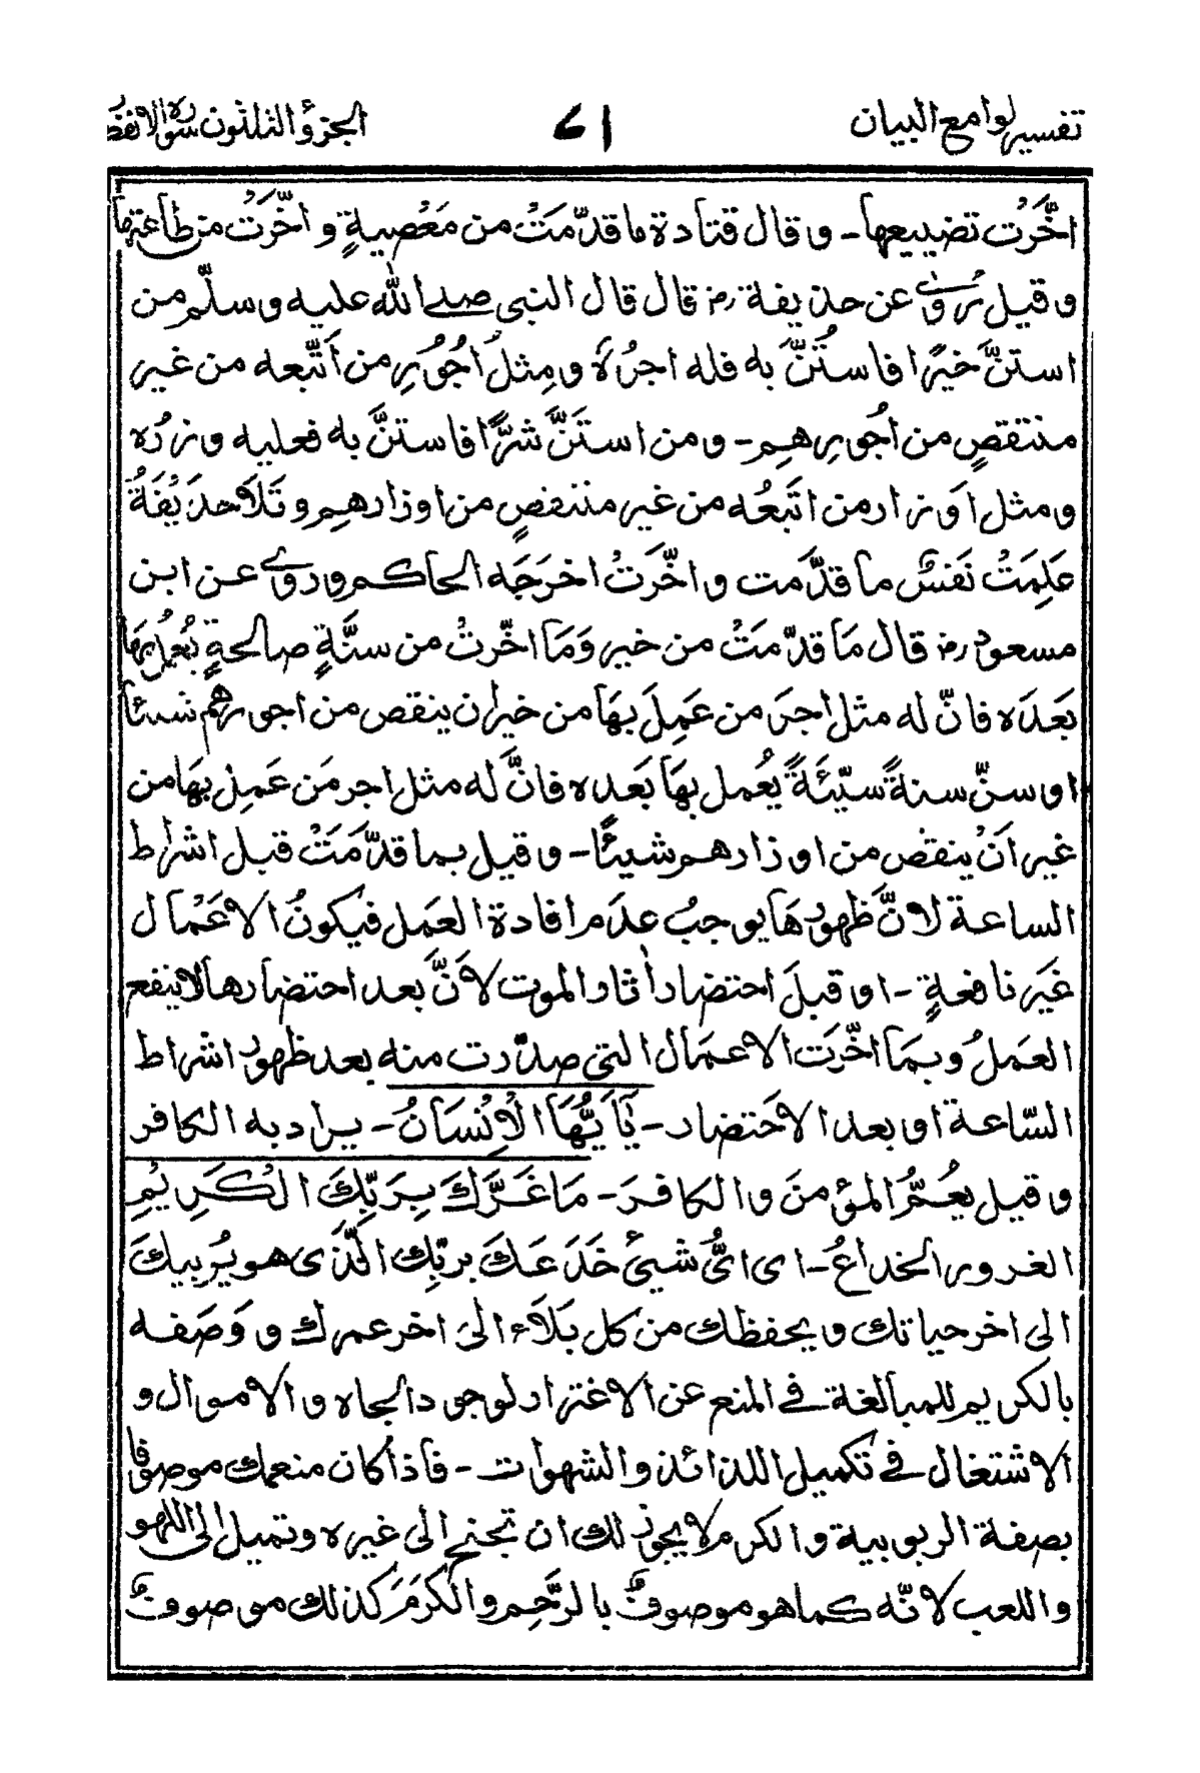 تفسير لوامع البيان ٧١ الجزؤ الثلثون سورة الانفطر
اخَّرَت تضييعها - و قال قتادة ما قدّمَتْ من مَعْصِيةٍ و اخَّرَتْ من طاعتها
و قيل رُوِىَ عن حذيفة رض قال قال النبى صلے الله عليه وسلّم من
استنَّ خيرًا فاستُنَّ به فله اجرُهُ و مِثلُ اُجُوُرِ من اتّبعه من غير
منتقصٍ من اُجُورِهِم - و من استَنَّ شرًّا فاستنَّ به فعليه وزرُه
و مثل اَوزار من اتَّبعُه من غير منتقصٍ من اوزارهِم و تَلَا حذَيْفَةُ
عَلِمَتْ نَفسٌ ما قدَّمت و اخَّرَتْ اخرَجَه الحاكم و روےٰ عن ابن
مسعود رض قال مَا قدّمَتْ من خير وَمَا اخّرتْ من سنَّةٍ صالحةٍ يُعْمَلُ بهَا
بَعدَه فانّ له مثل اجرَ من عَمِلَ بهَا من خيران ينقص من اجورهم شيئا
او سنّ سنةً سيّئَةً يُعمل بهَا بَعده فانَّ له مثل اجر مَن عَمِل بهَا من
غير انْ ينقص من اوزارهم شيئًا - و قيل بما قدَّمَتْ قبل اشراط
الساعة لانَّ ظهورهَا يوجبُ عدَم افادة العَمل فيكونُ الاعْمال
غَير نافعةٍ - او قبلَ احتضار اٰثار الموت لاَنَّ بعد احتضارها لا ينفع
العَملُ وبمَا اخَّرَت الاعمَال التى صدّرت منه بعد ظهور اشراط
السّاعة او بعد الاحتضار - يٓاَيُّهَا الْاِنْسَانُ - يراد به الكافر
و قيل يعُمُّ المؤمنَ و الكافرَ - مَا غَرَّكَ بِرَبِّكَ الْكَرِيْمِ
الغرور الخداعُ - اى اىُّ شيئٍ خَدَعَكَ بربِّك الَّذى هو يُربيكَ
الى اخر حياتك و يحفظك من كل بَلَاء الىٰ اخر عمرك و وَصَفه
بالكريم للمبالغة فے المنع عن الاغترار لوجود الجاه و الاموال و
الاشتغال فے تكميل اللذائذ و الشهوات - فاذا كان منعمك موصوفا
بصفة الربوبية و الكرم لا يجوز لك ان تجنح الى غيره و تميل الى اللهو
و اللعب لانّه كما هو موصوفٌ بالرَّحِم و الكَرَمَ كذلك موصوفٌ